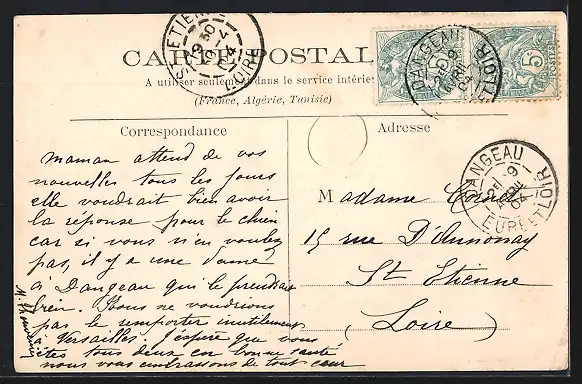 CARTE POSTALE
A utiliser seulement dans le service intérieur
(France, Algérie, Tunisie)
Correspondance
Adresse
maman attend de vos
nouvelles tous les jours
elle voudrait bien avoir
la réponse pour le chien
car si vous n'en voulez
pas, il y a une dame
à Dangeau qui le prendrait
bien. Nous ne voudrions
pas le remporter inutilement
à Versailles. J'espère que vous
êtes tous deux en bonne santé
nous vous embrassons de tout cœur
Madame
15 rue D'Annonay
St Etienne
(Loire)
ST ETIENNE
LOIRE
DANGEAU
EURE ET LOIR
5c
POSTES
DANGEAU
9
04
EURE ET LOIR